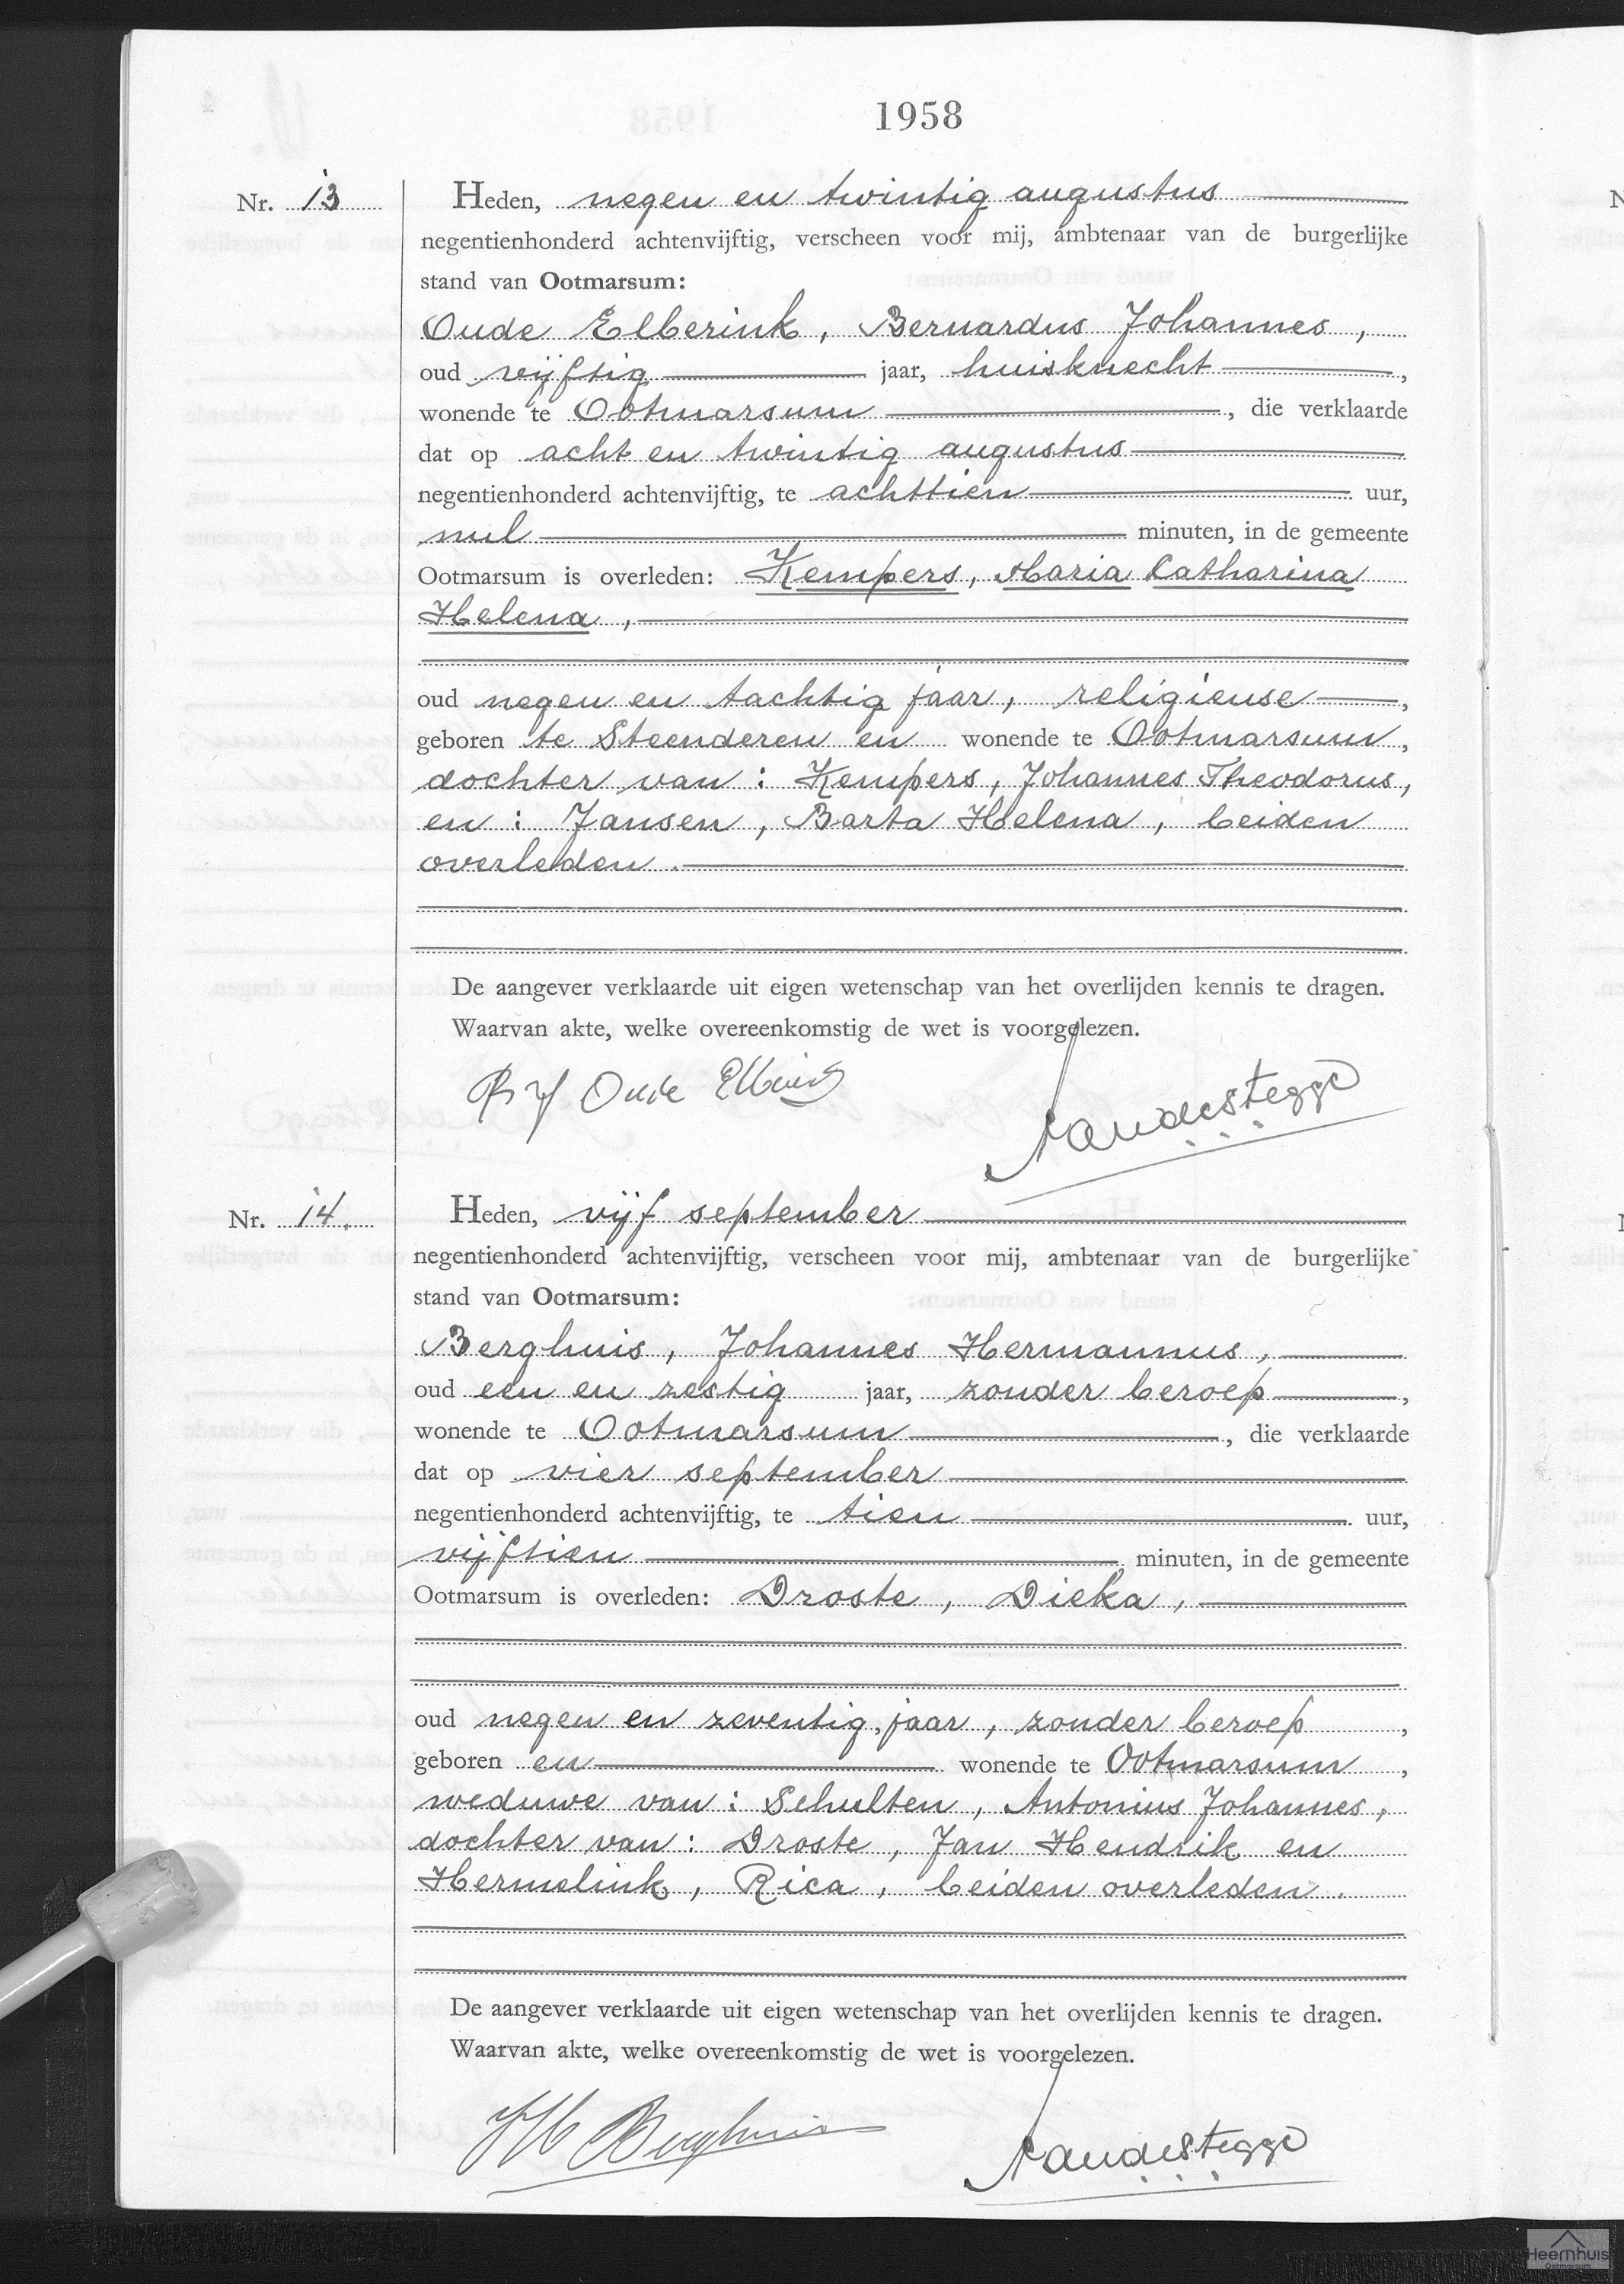 1958
Nr. 13
Heden, negen en twintig augustus
negentienhonderd achtenvijftig, verscheen voor mij, ambtenaar van de burgerlijke
stand van Ootmarsum:
Oude Elberink, Bernardus Johannes,
oud vijftig jaar, huisknecht,
wonende te Ootmarsum, die verklaarde
dat op acht en twintig augustus
negentienhonderd achtenvijftig, te achttien uur,
nul minuten, in de gemeente
Ootmarsum is overleden: Kempers, Maria Catharina
Helena,
oud negen en tachtig jaar, religieuse,
geboren te Steenderen en wonende te Ootmarsum,
dochter van: Kempers, Johannes Theodorus,
en: Jansen, Barta Helena, beiden
overleden.
De aangever verklaarde uit eigen wetenschap van het overlijden kennis te dragen.
Waarvan akte, welke overeenkomstig de wet is voorgelezen.
BJ Oude Elberink
Nr. 14.
Heden, vijf september
negentienhonderd achtenvijftig, verscheen voor mij, ambtenaar van de burgerlijke
stand van Ootmarsum:
Berghuis, Johannes Hermannus,
oud een en zestig jaar, zonder beroep,
wonende te Ootmarsum, die verklaarde
dat op vier september
negentienhonderd achtenvijftig, te tien uur,
vijftien minuten, in de gemeente
Ootmarsum is overleden: Droste, Dieka,
oud negen en zeventig jaar, zonder beroep,
geboren en wonende te Ootmarsum,
weduwe van: Schulten, Antonius Johannes,
dochter van: Droste, Jan Hendrik en
Hermelink, Rica, beiden overleden.
De aangever verklaarde uit eigen wetenschap van het overlijden kennis te dragen.
Waarvan akte, welke overeenkomstig de wet is voorgelezen.
JH Berghuis
Heemhuis
Ootmarsum